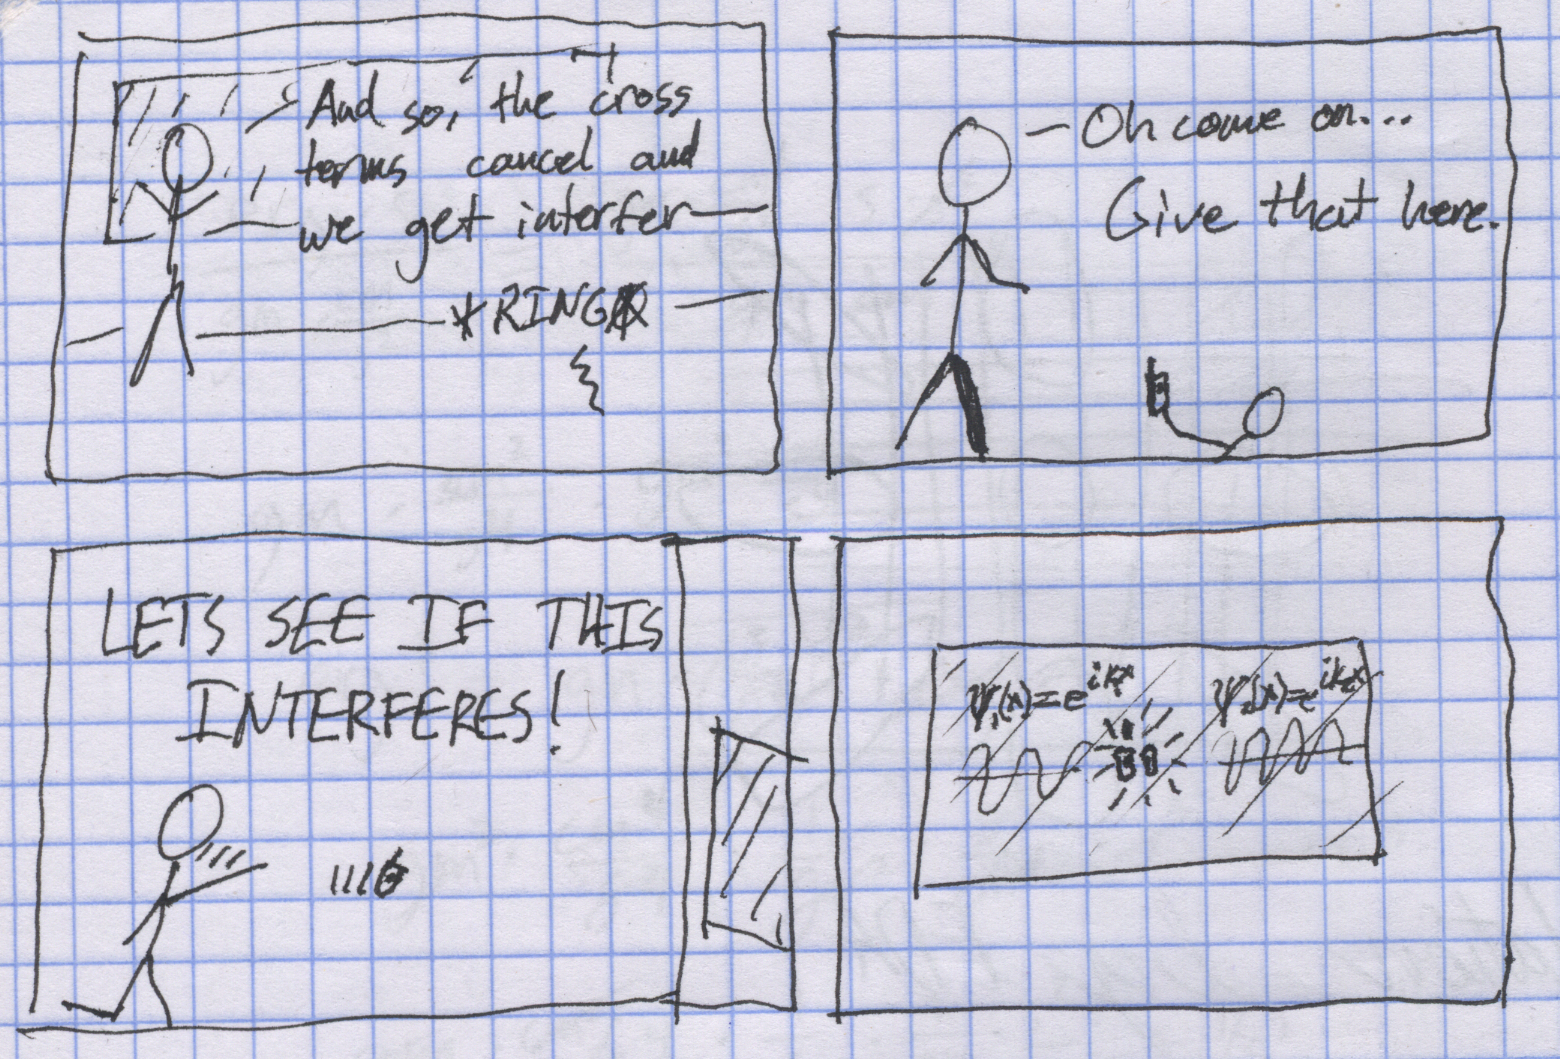 And so, the cross
terms cancel and
we get interfer
*RING*
Oh come on...
Give that here.
LETS SEE IF THIS
INTERFERES!
ψ₁(x)=e^{ik₁x}
ψ₂(x)=e^{ik₂x}